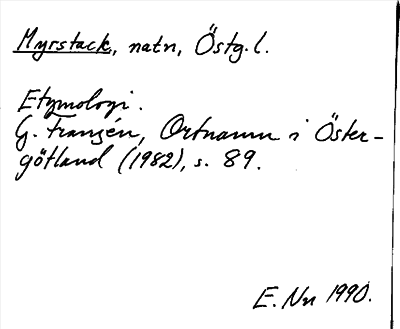 Myrstack, natn, Östg. l.
Etymologi.
G. Franzén, Ortnamn i Öster-
götland (1982), s. 89.
E. Nn 1990.